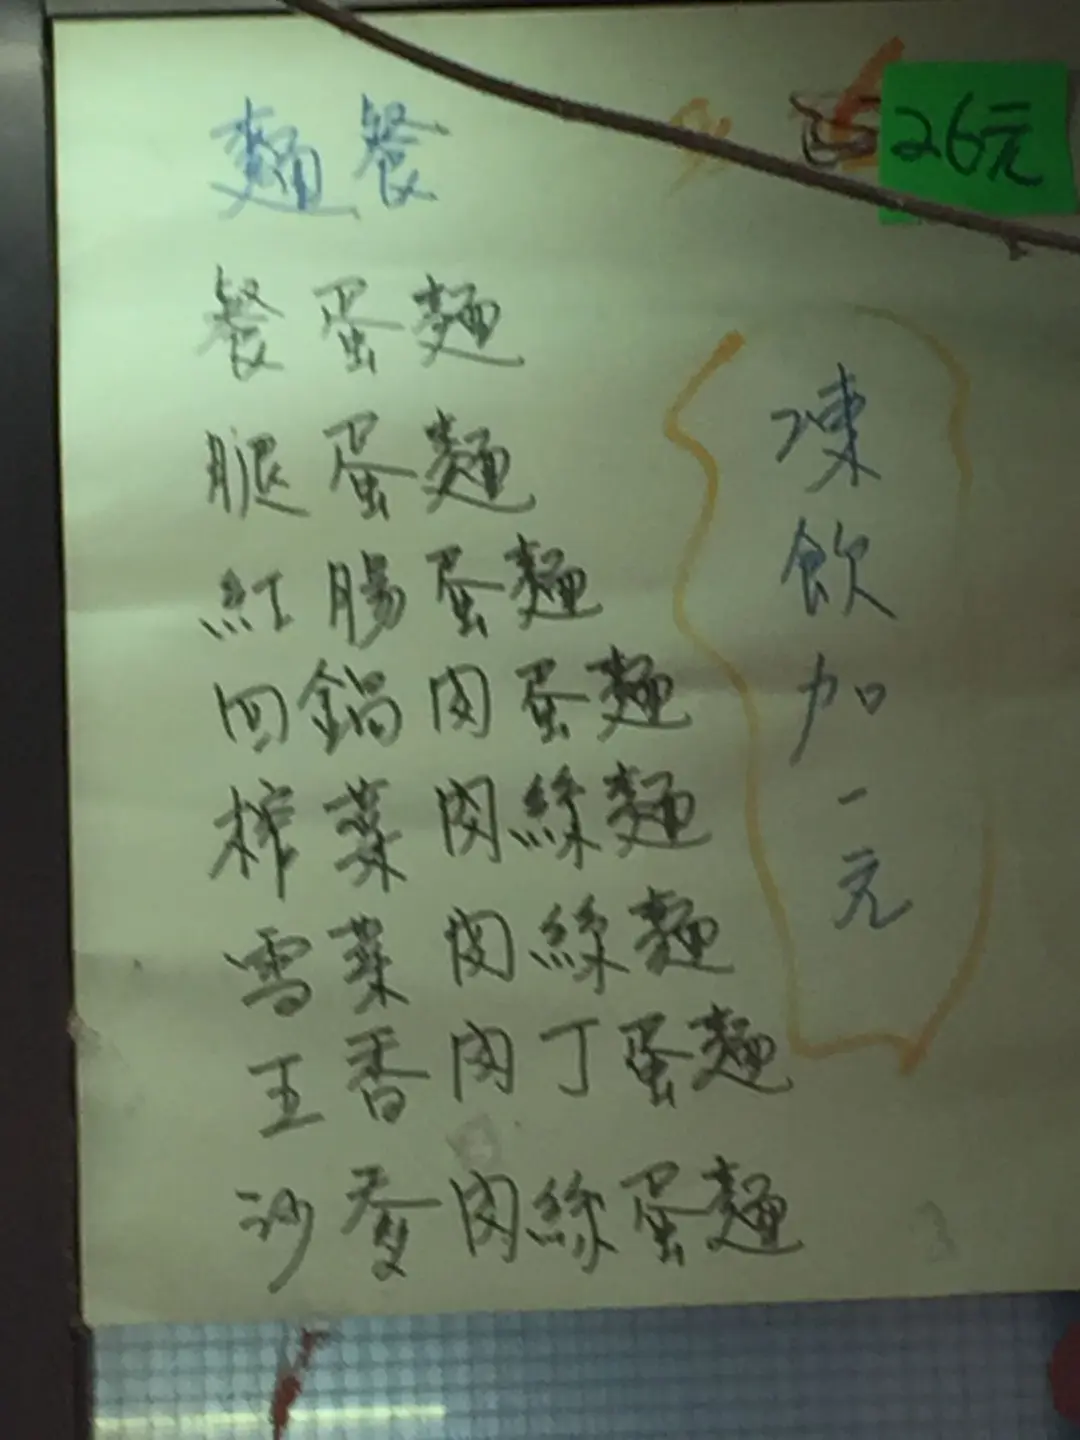 麵餐
26元
餐蛋麵
腿蛋麵
紅腸蛋麵
回鍋肉蛋麵
榨菜肉絲麵
雪菜肉絲麵
五香肉丁蛋麵
沙爹肉絲蛋麵
凍飲加一元